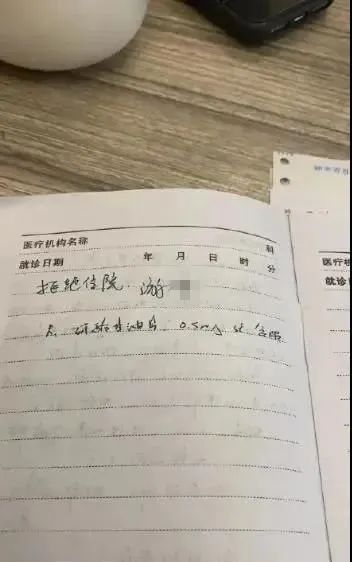 医疗机构名称 科
就诊日期 年 月 日 时 分
拒绝住院. 游
硝酸甘油片 0.5mg st 含服
医疗机
就诊日